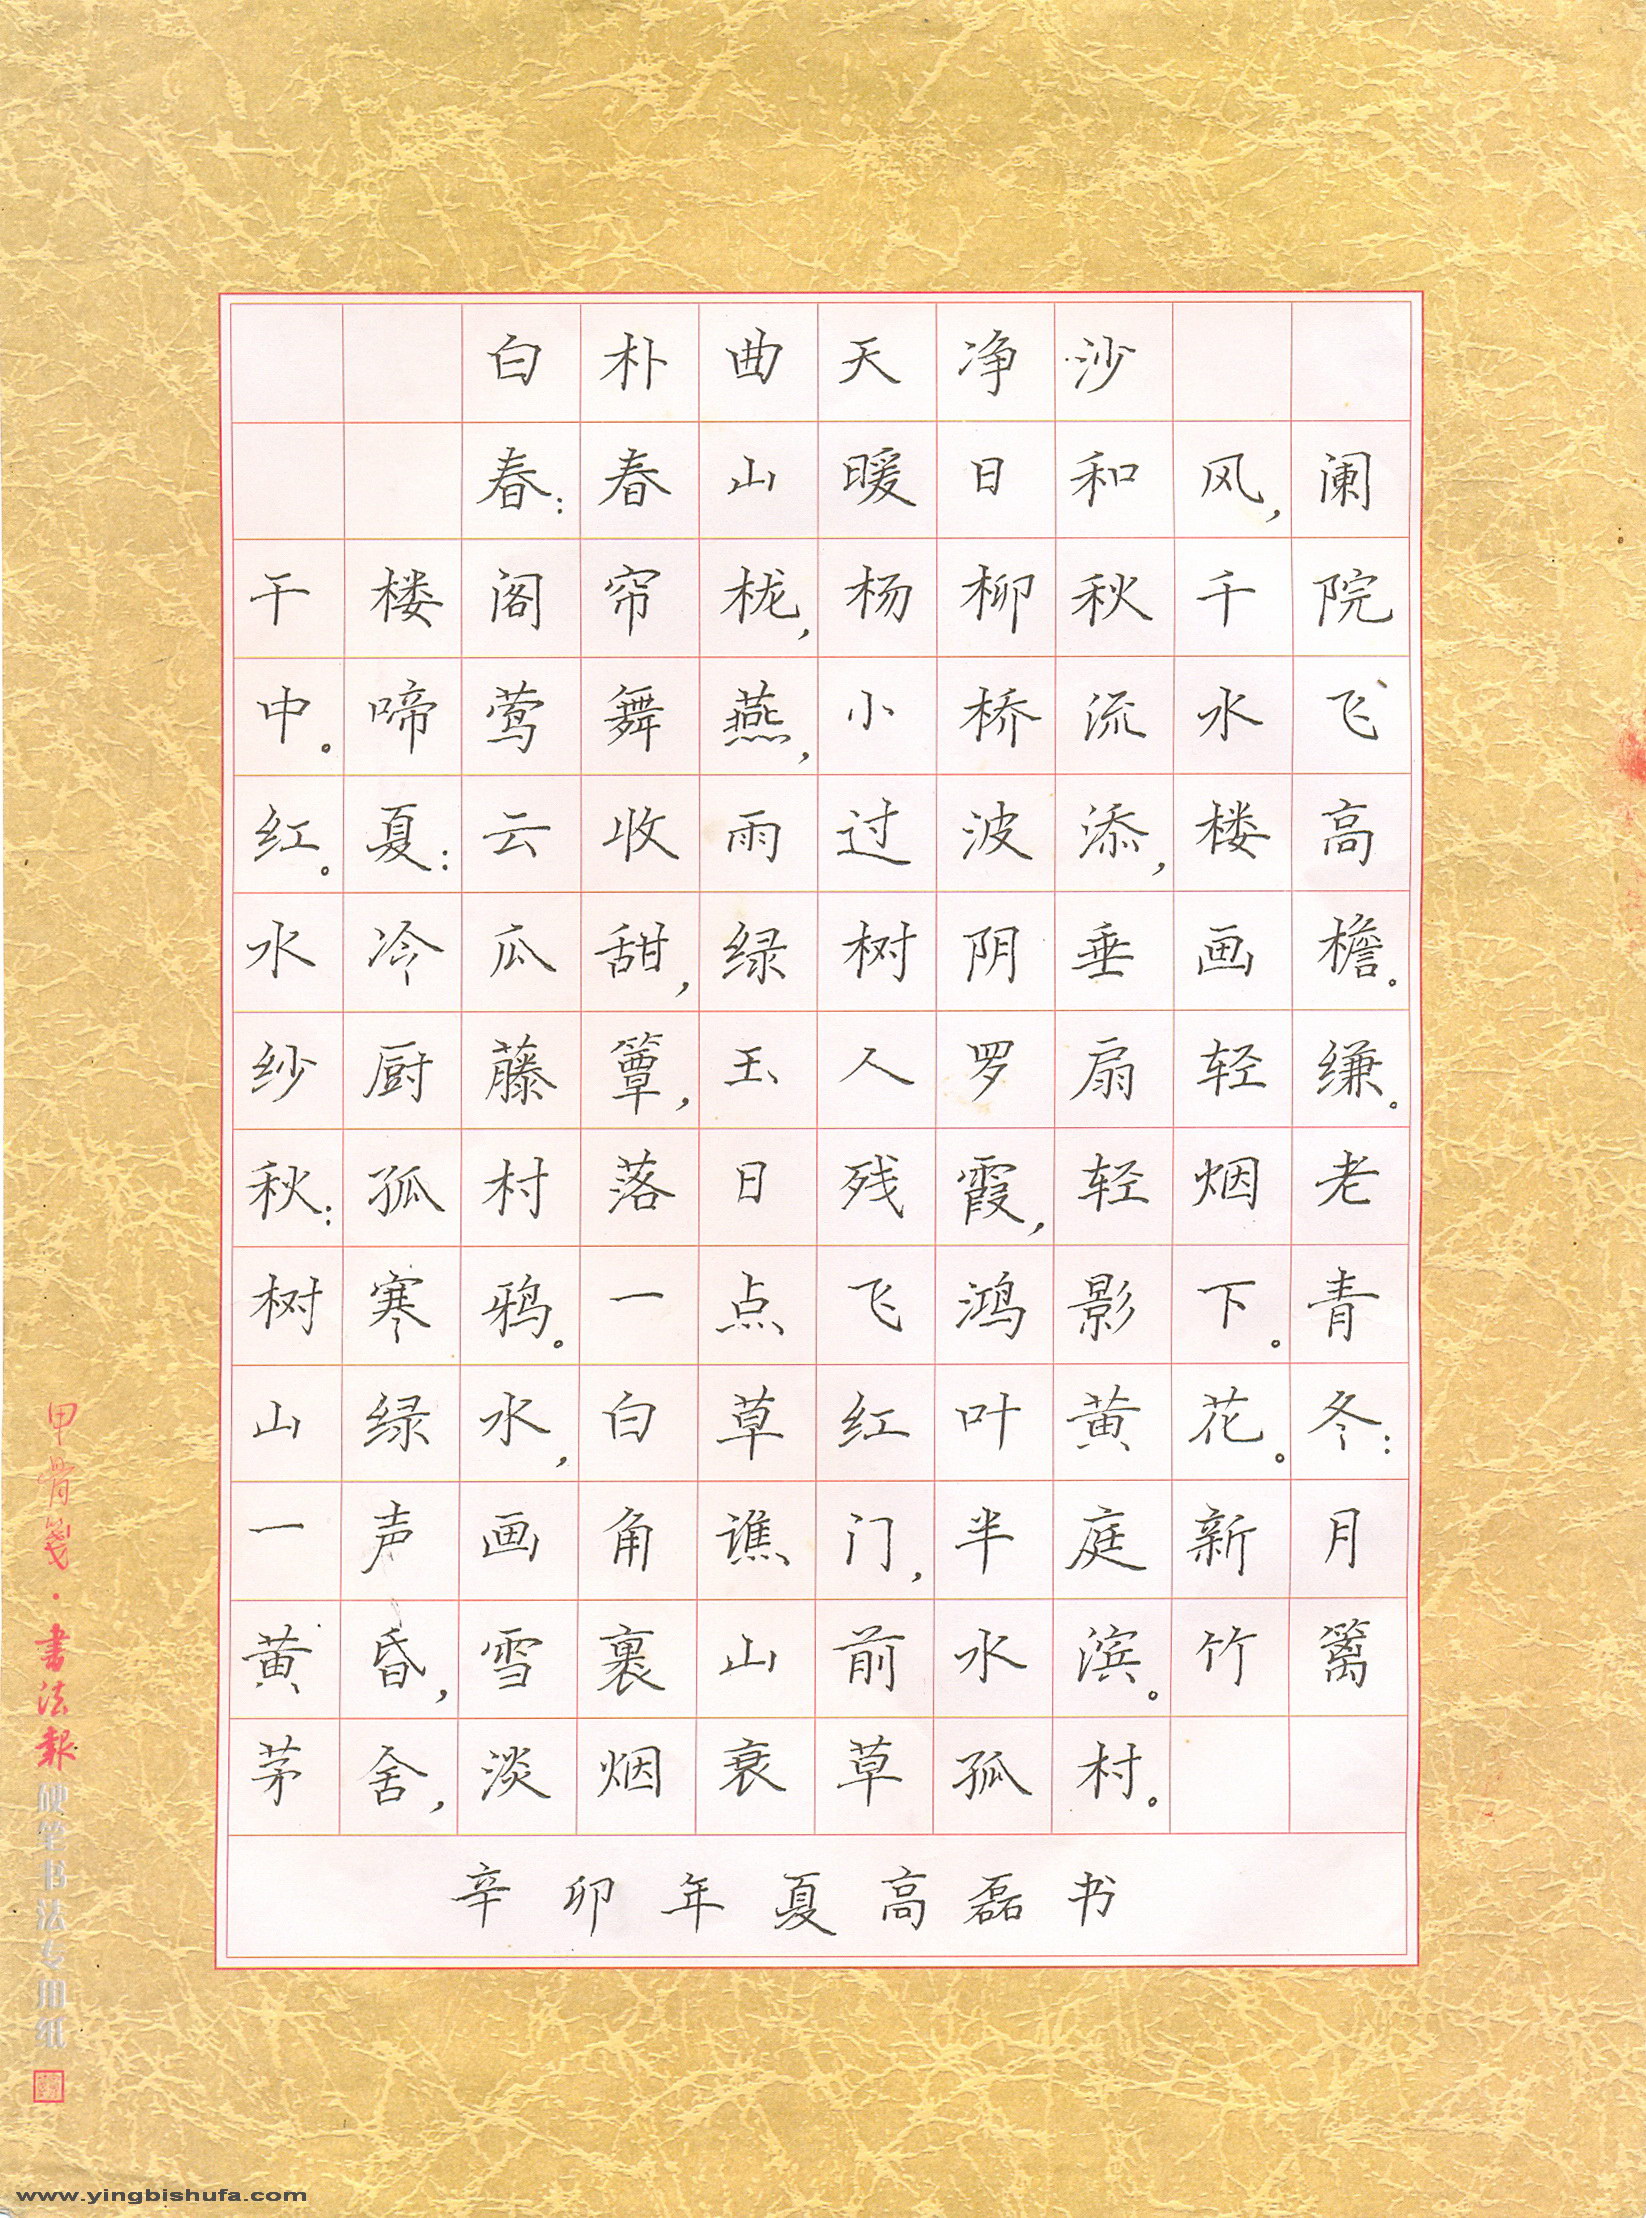 白朴曲天净沙
春:春山暖日和风,阑
干楼阁帘栊,杨柳秋千院
中。啼莺舞燕,小桥流水飞
红。夏:云收雨过波添,楼高
水冷瓜甜,绿树阴垂画檐。
纱厨藤簟,玉人罗扇轻缣。
秋:孤村落日残霞,轻烟老
树寒鸦。一点飞鸿影下。青
山绿水,白草红叶黄花。冬:
一声画角谯门,半庭新月
黄昏,雪裹山前水滨。竹篱
茅舍,淡烟衰草孤村。
辛卯年夏高磊书
甲骨笺·書法報硬笔书法专用纸
www.yingbishufa.com